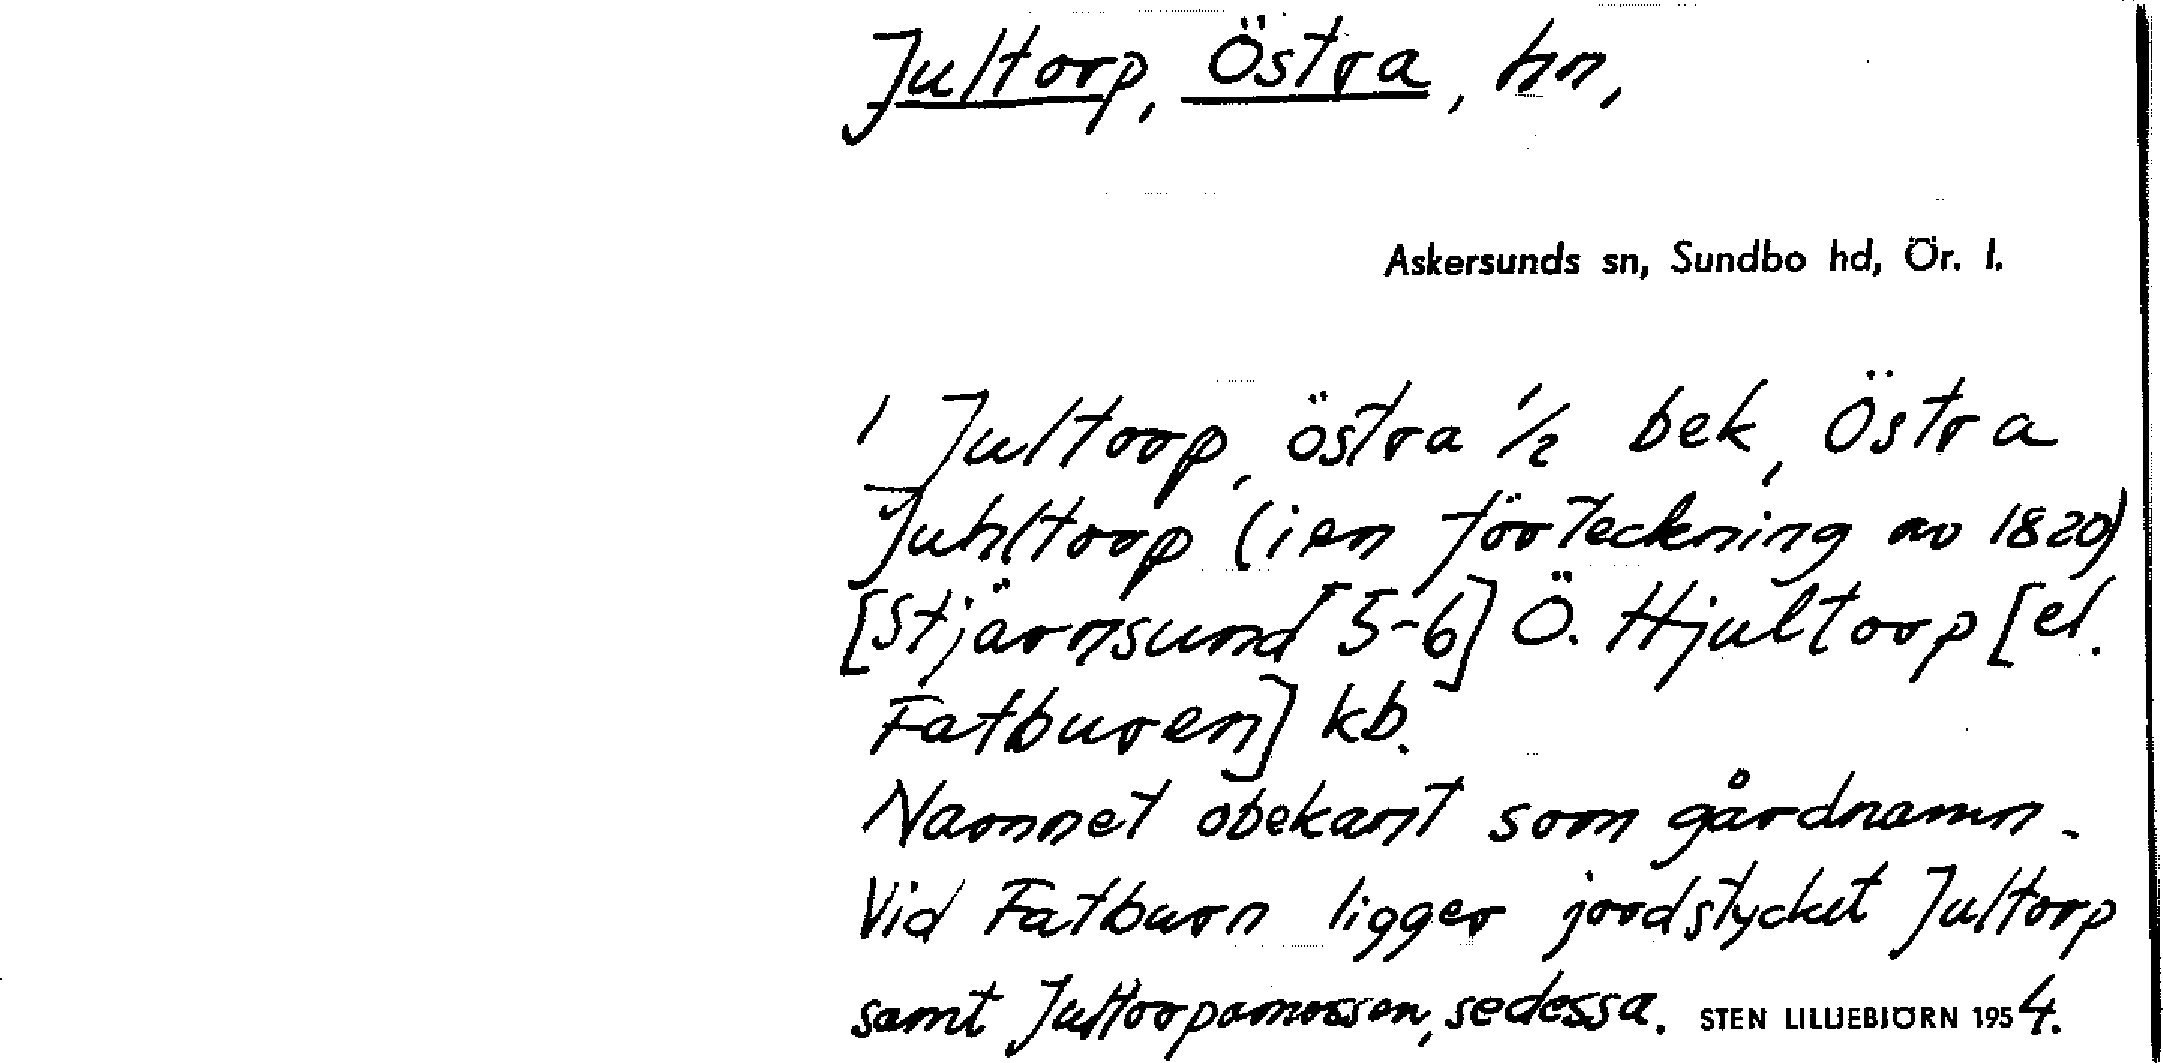 Jultorp, Östra, hn,
Askersunds sn, Sundbo hd, Ör. l.
1 Jultorp, östra 1/2 bek, Östra
Juhltorp (i en förteckning av 1820)
[Stjärnsund 5-6] Ö. Hjultorp [el.
Fatburen] kb.
Namnet obekant som gårdnamn.
Vid Fatburn ligger jordstycket Jultorp
samt Jultorpamossen, se dessa. STEN LILLIEBJÖRN 1954.